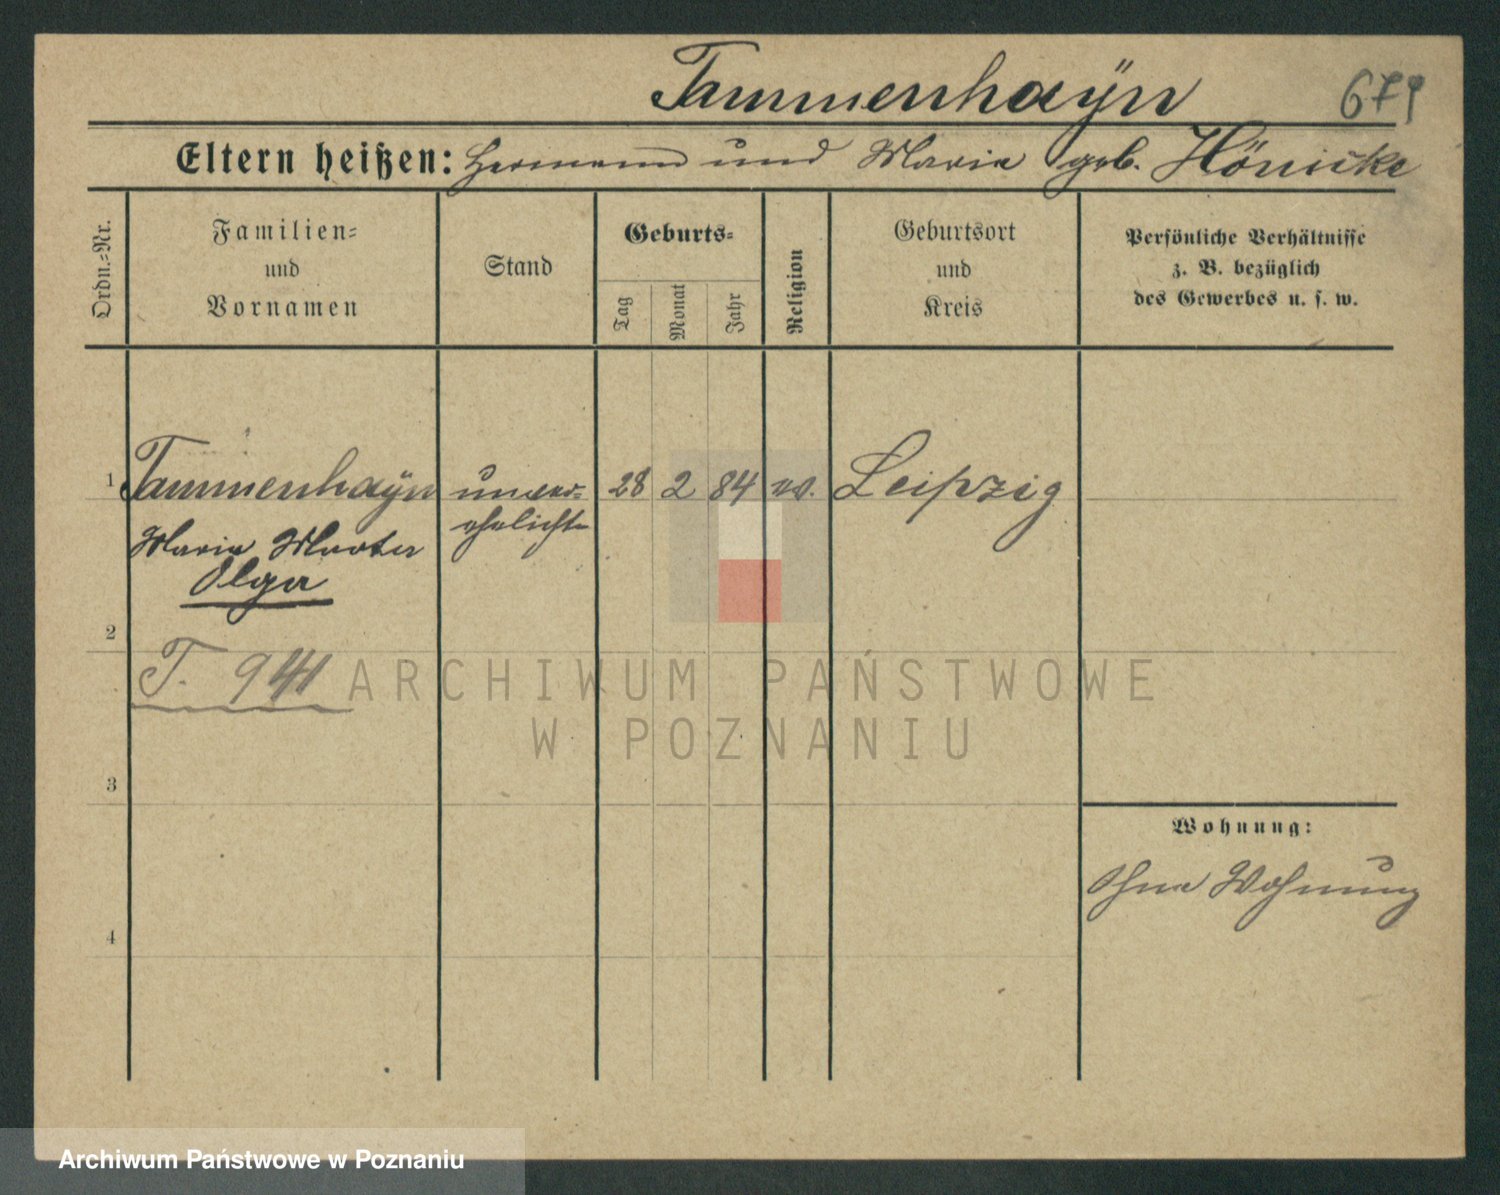 Tannenhaÿn
679
Eltern heißen: Hermann und Maria geb. Hönicke
Ordn.-Nr.
Familien-
und
Vornamen
Stand
Geburts-
Tag
Monat
Jahr
Religion
Geburtsort
und
Kreis
Persönliche Verhältnisse
z. B. bezüglich
des Gewerbes u. s. w.
1 Tannenhaÿn unver- 28 2 84 ev. Leipzig
ehelicht
Marie Martha
Olga
2
T. 941
ARCHIWUM PAŃSTWOWE
W POZNANIU
3
Wohnung:
Ohne Wohnung
4
Archiwum Państwowe w Poznaniu